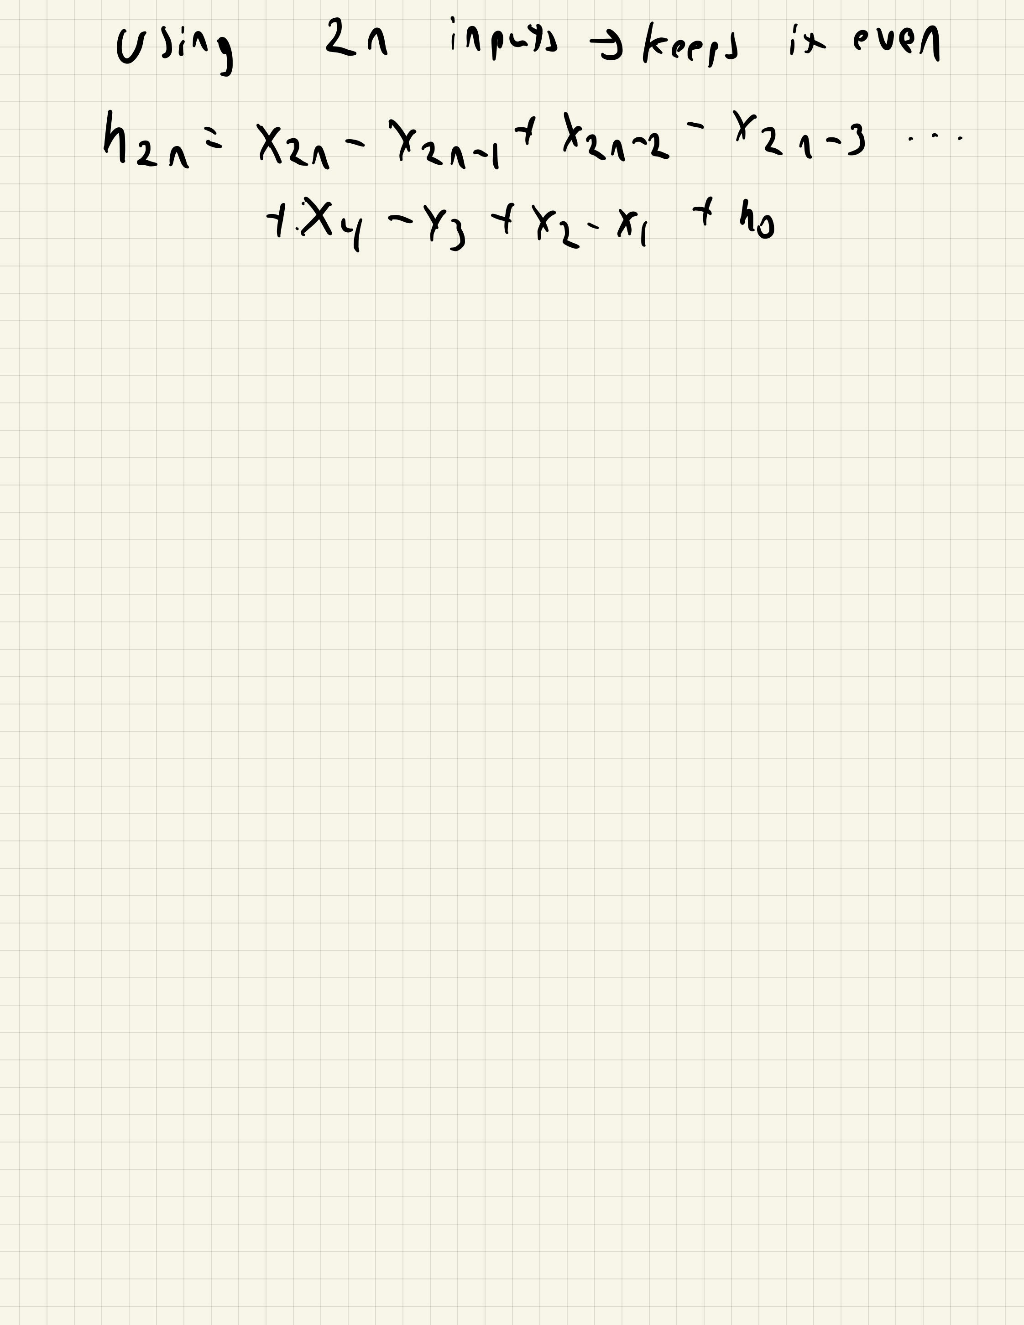 Using 2n inputs → keeps it even
h₂ₙ = x₂ₙ - x₂ₙ₋₁ + x₂ₙ₋₂ - x₂ₙ₋₃ ...
+ x₄ - x₃ + x₂ - x₁ + h₀